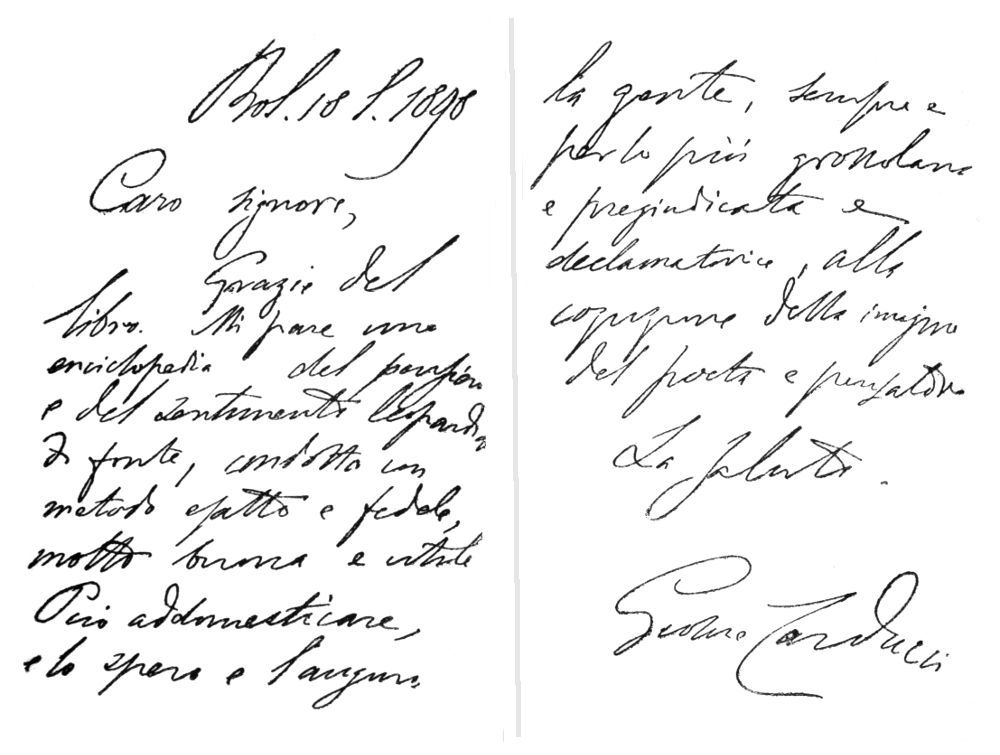 Bol. 18 S. 1898
Caro signore,
Grazie del
libro. Mi pare una
enciclopedia del pensiero
e del sentimento leopardiano
di fonte, condotta con
metodo esatto e fedele,
molto buona e utile
Può addomesticare,
e lo spero e l'auguro
la gente, sempre e
per lo più grossolana
e pregiudicata e
declamatoria, alla
cognizione della
del poeta e pensatore
La saluto.
Giosue Carducci